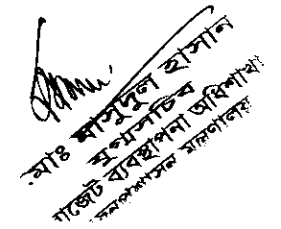 মোঃ মাসুদুল হাসান
যুগ্মসচিব
বাজেট ব্যবস্থাপনা অধিশাখা
জনপ্রশাসন মন্ত্রণালয়